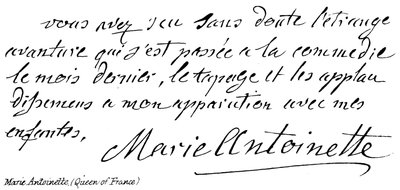 vous avez scu sans doute l'étrange
avanture qui s'est passée a la commedie
le mois dernier, le tapage et les applau
dissemens a mon apparution avec mes
enfantes,
Marie Antoinette
Marie Antoinette, (Queen of France)